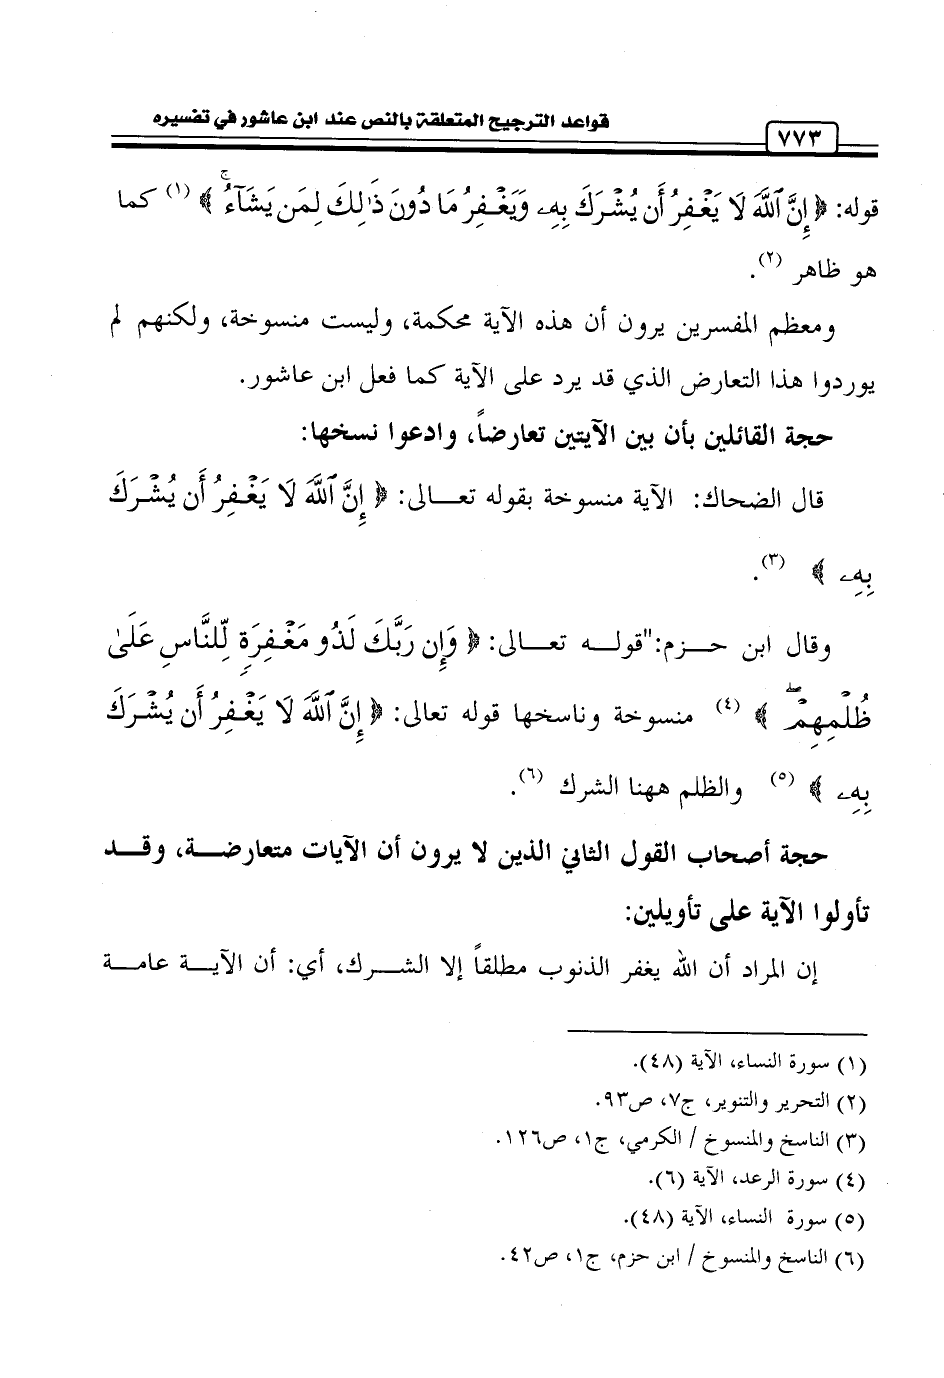 قواعد الترجيح المتعلقة بالنص عند ابن عاشور في تفسيره
٧٧٣
قوله: ﴿ إِنَّ ٱللَّهَ لَا يَغْفِرُ أَن يُشْرَكَ بِهِۦ وَيَغْفِرُ مَا دُونَ ذَٰلِكَ لِمَن يَشَآءُ ۚ ﴾ (١) كما
هو ظاهر (٢).
ومعظم المفسرين يرون أن هذه الآية محكمة، وليست منسوخة، ولكنهم لم
يوردوا هذا التعارض الذي قد يرد على الآية كما فعل ابن عاشور.
حجة القائلين بأن بين الآيتين تعارضاً، وادعوا نسخها:
قال الضحاك: الآية منسوخة بقوله تعالى: ﴿ إِنَّ ٱللَّهَ لَا يَغْفِرُ أَن يُشْرَكَ
بِهِۦ ﴾ (٣).
وقال ابن حزم:"قوله تعالى: ﴿ وَإِن رَبَّكَ لَذُو مَغْفِرَةٍ لِّلنَّاسِ عَلَىٰ
ظُلْمِهِمْ ۖ ﴾ (٤) منسوخة وناسخها قوله تعالى: ﴿ إِنَّ ٱللَّهَ لَا يَغْفِرُ أَن يُشْرَكَ
بِهِۦ ﴾ (٥) والظلم ههنا الشرك (٦).
حجة أصحاب القول الثاني الذين لا يرون أن الآيات متعارضة، وقد
تأولوا الآية على تأويلين:
إن المراد أن الله يغفر الذنوب مطلقاً إلا الشرك، أي: أن الآية عامة
(١) سورة النساء، الآية (٤٨).
(٢) التحرير والتنوير، ج٧، ص٩٣.
(٣) الناسخ والمنسوخ / الكرمي، ج١، ص١٢٦.
(٤) سورة الرعد، الآية (٦).
(٥) سورة النساء، الآية (٤٨).
(٦) الناسخ والمنسوخ / ابن حزم، ج١، ص٤٢.